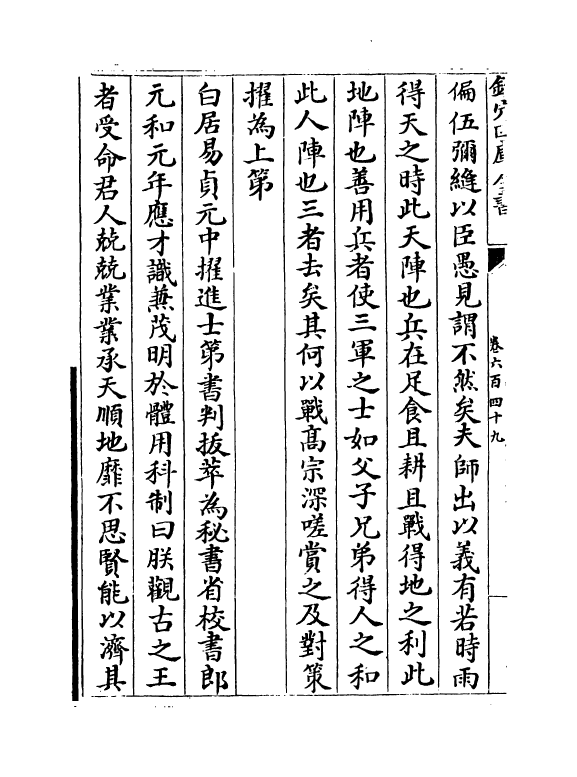 欽定四庫全書
卷六百四十九
偏伍彌縫以臣愚見謂不然矣夫師出以義有若時雨
得天之時此天陣也兵在足食且耕且戰得地之利此
地陣也善用兵者使三軍之士如父子兄弟得人之和
此人陣也三者去矣其何以戰髙宗深嗟賞之及對策
擢為上第
白居易貞元中擢進士第書判拔萃為秘書省校書郎
元和元年應才識兼茂明於體用科制曰朕觀古之王
者受命君人兢兢業業承天順地靡不思賢能以濟其